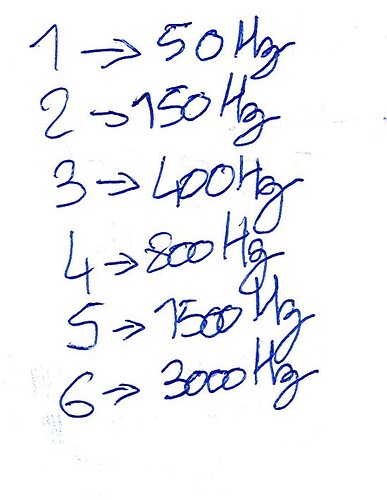 1 → 50Hz
2 → 150Hz
3 → 400Hz
4 → 800Hz
5 → 1500Hz
6 → 3000Hz